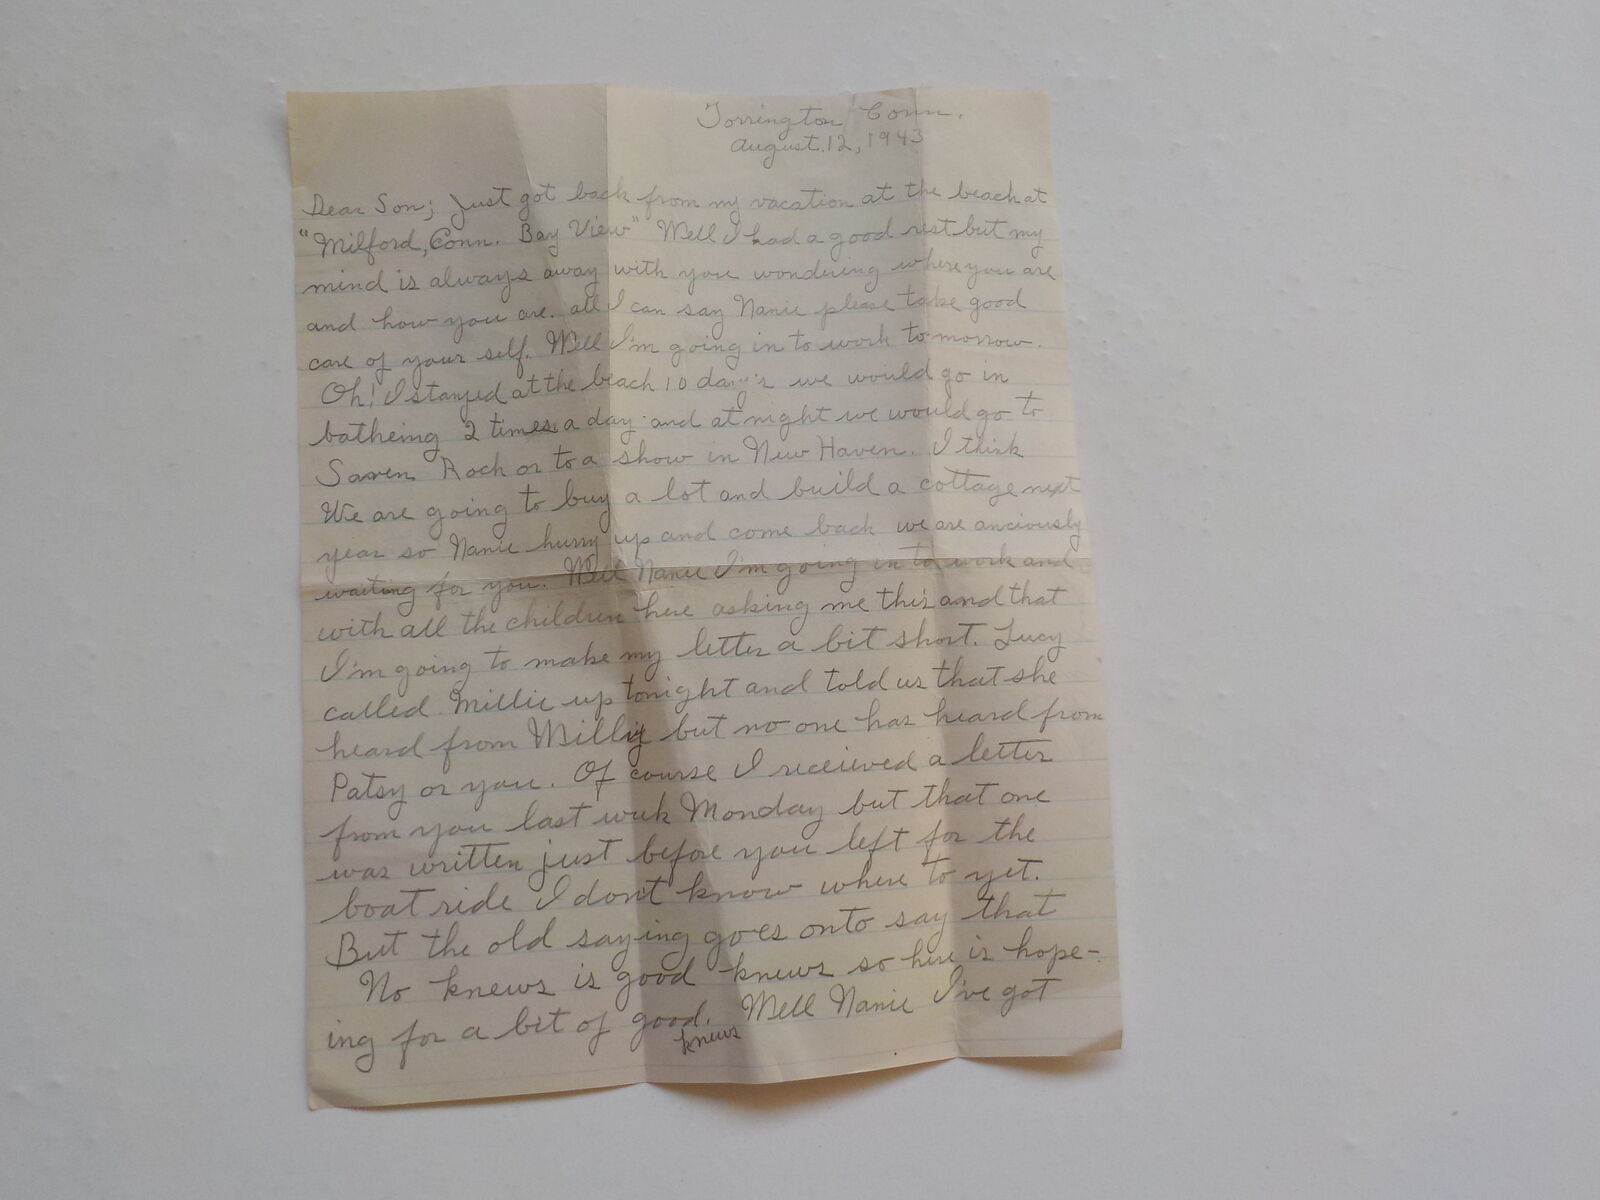 Torrington Conn.
August. 12, 1943
Dear Son; Just got back from my vacation at the beach at
"Milford, Conn. Bay View" Well I had a good rest but my
mind is always away with you wondering where you are
and how you are. all I can say Nanie please take good
care of your self. Well I'm going in to work to morrow.
Oh! I stayed at the beach 10 day's we would go in
batheing 2 times a day and at night we would go to
Saven Rock or to a show in New Haven. I think
We are going to buy a lot and build a cottage next
year so Nanie hurry up and come back we are anciously
waiting for you. Well Nanie I'm going in to work and
with all the children here asking me this and that
I'm going to make my letter a bit short. Lucy
called Millie up tonight and told us that she
heard from Milly but no one has heard from
Patsy or you. Of course I received a letter
from you last week Monday but that one
was written just before you left for the
boat ride I don't know where to yet.
But the old saying goes onto say that
No knews is good knews so here is hope-
ing for a bit of good. Well Nanie I've got
knews